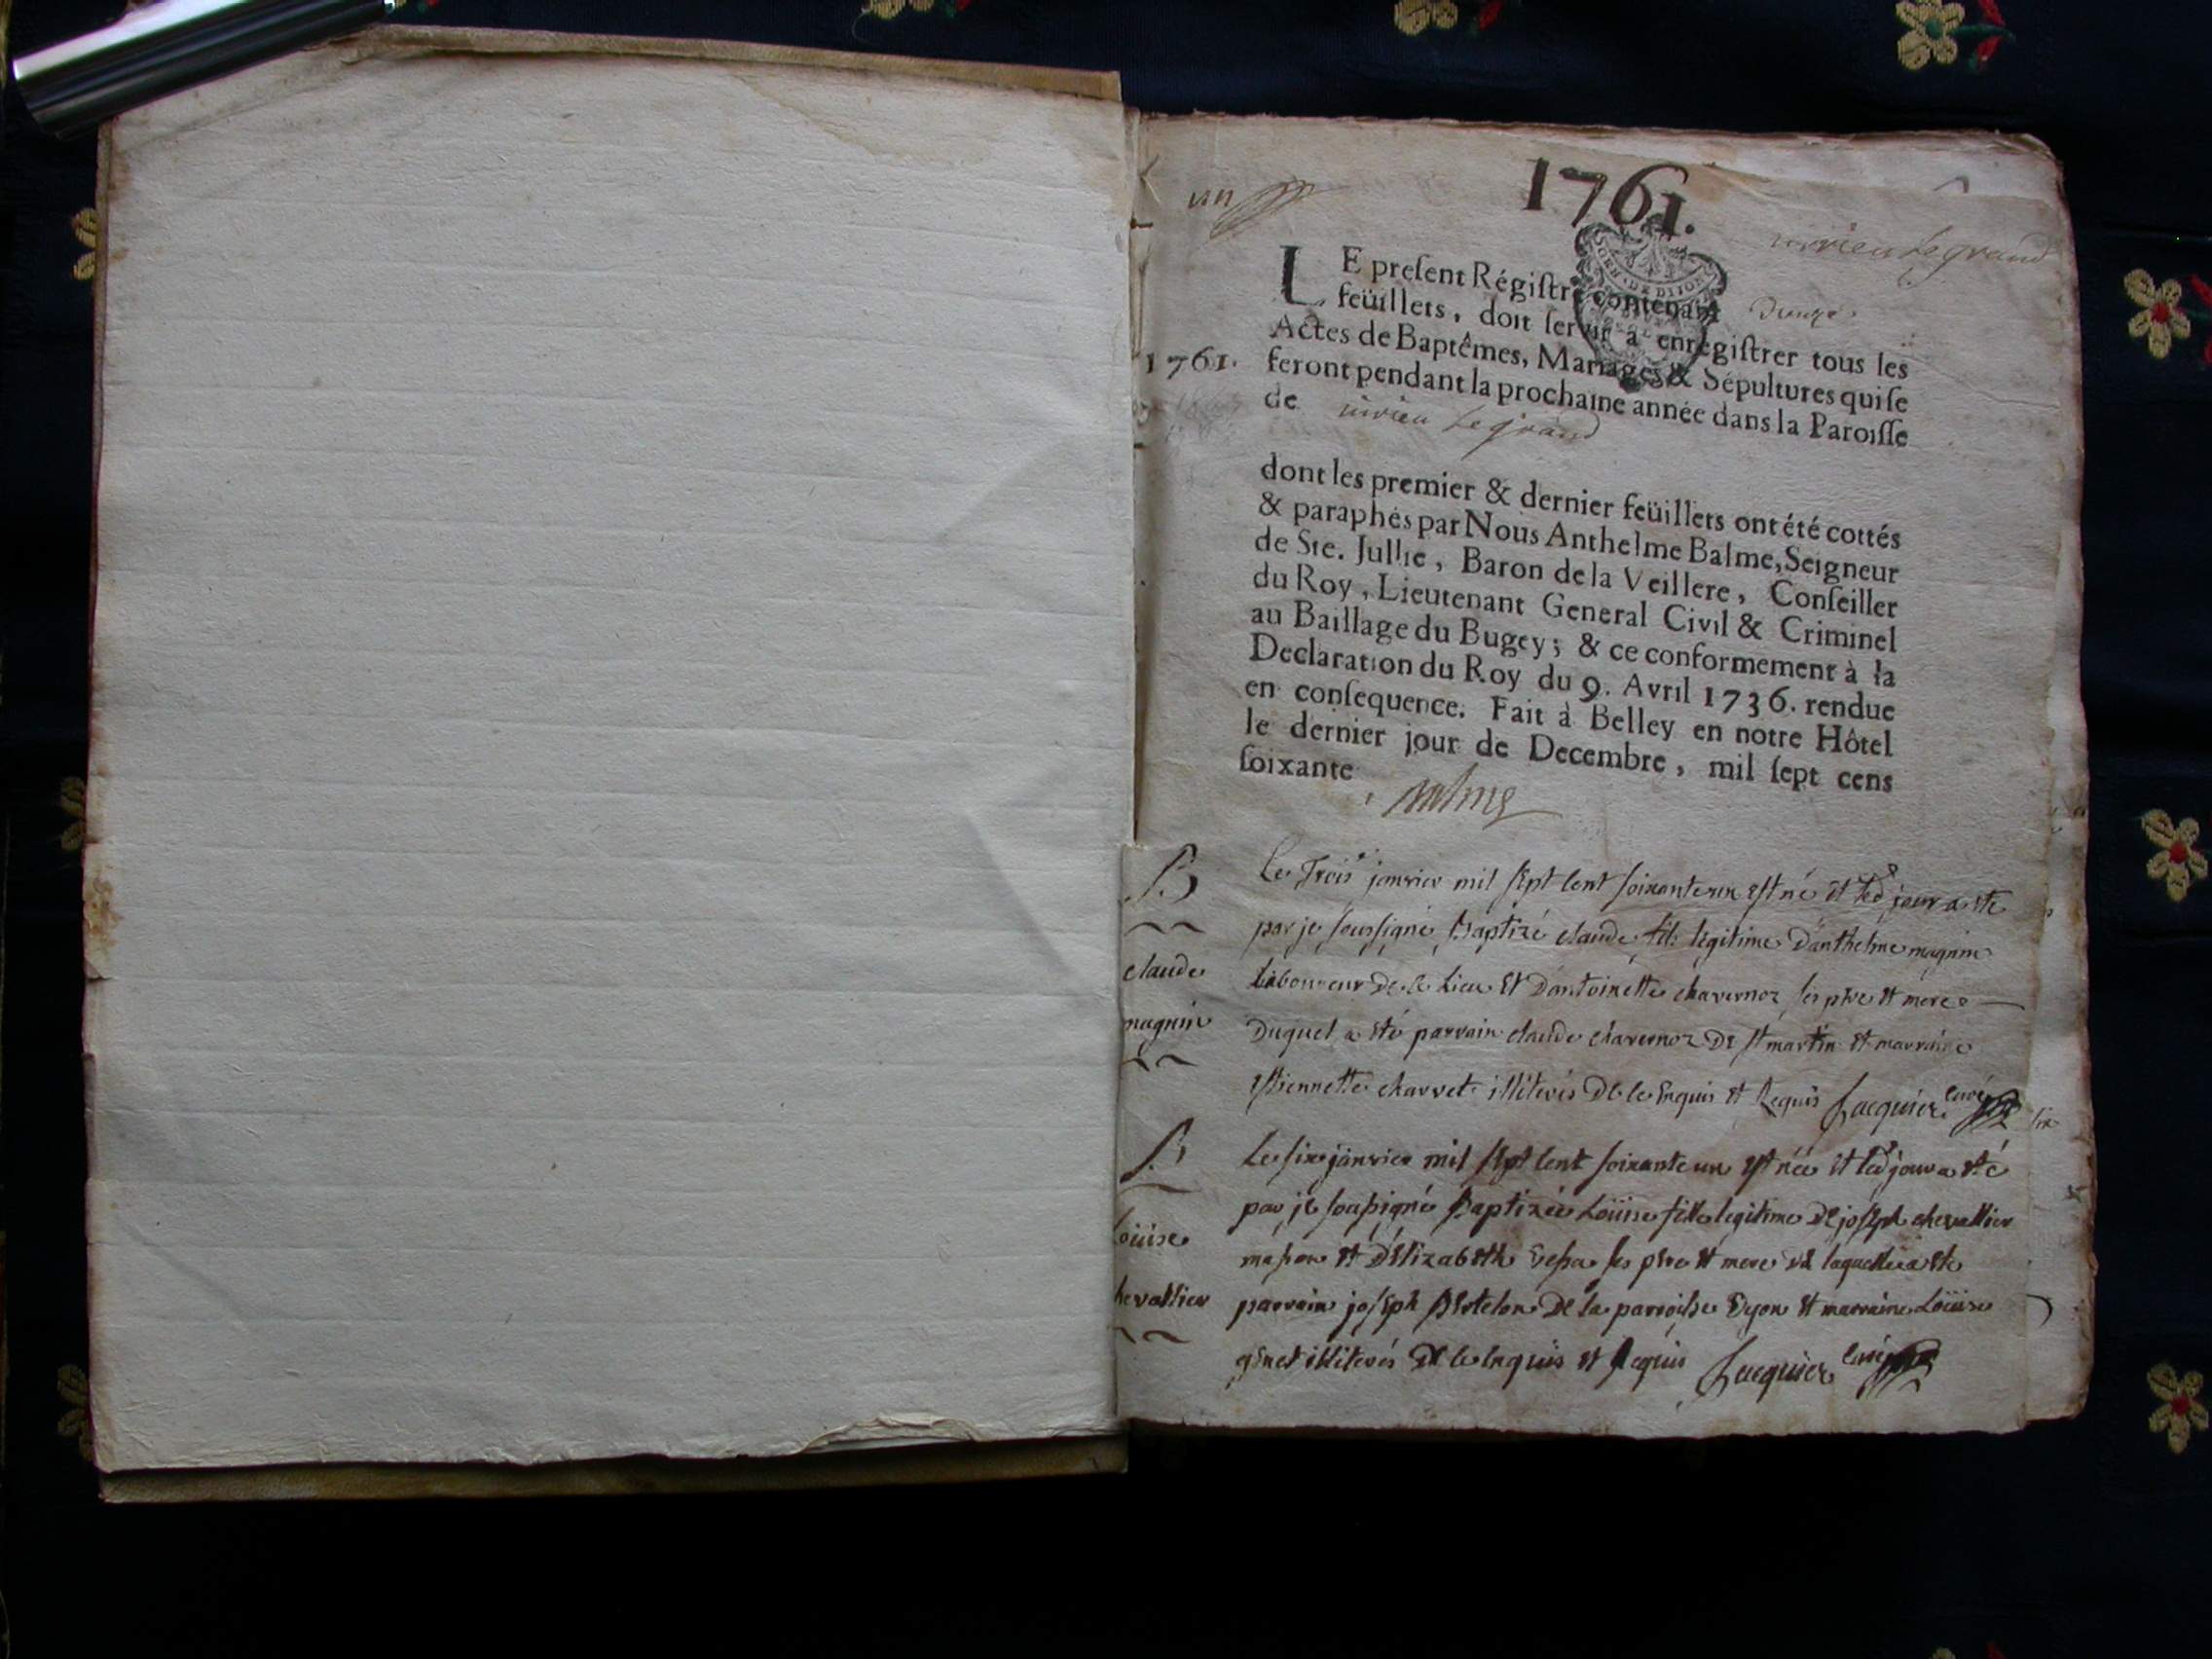 un
1761.
virieu Le grand
GEN. DE DIJON
LE preſent Régiſtre contenant Douze
feüillets, doit ſervir à enregiſtrer tous les
Actes de Baptêmes, Mariages & Sépultures qui ſe
1761. feront pendant la prochaine année dans la Paroiſſe
de virieu Le grand
dont les premier & dernier feüillets ont été cottés
& paraphés par Nous Anthelme Balme, Seigneur
de Ste. Jullie, Baron de la Veillere, Conſeiller
du Roy, Lieutenant General Civil & Criminel
au Baillage du Bugey; & ce conformement à la
Declaration du Roy du 9. Avril 1736. rendue
en conſequence. Fait à Belley en notre Hôtel
le dernier jour de Decembre, mil ſept cens
ſoixante
Balme
B
claude
magnin
Le Trois janvier mil sept cent soixante un est né et led jour a eté
par je soussigné Baptizé claude fils légitime D'anthelme magnin
laboureur De ce Lieu et D'antoinette chavernoz ses pere et mere
Duquel a eté parrain claude chavernoz De st martin et marraine
estiennette charvet illiterés De ce Enquis et Requis Jacquier curé
B
Loüise
chevallier
Le six janvier mil sept cent soixante un est née et led jour a eté
par je soussigné Baptizée Loüise fille legitime De joseph chevallier
masson et D'Elizabeth ses pere et mere De laquelle a eté
parrain joseph Bertelon De la parroisse Dyon et marraine Loüise
genet illiterés De ce Enquis et Requis Jacquier curé